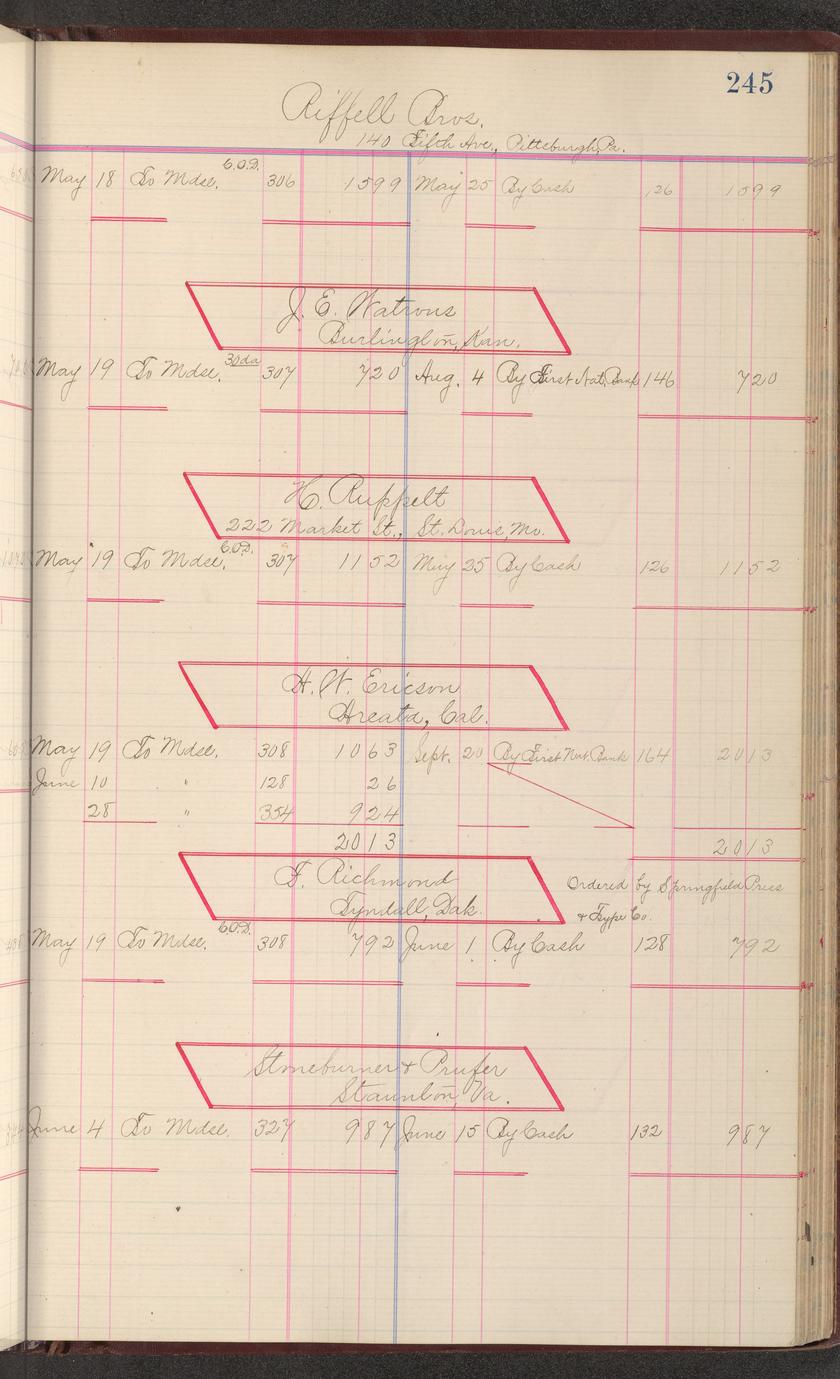 245
Riffell Bros.
140 Fifth Ave., Pittsburgh, Pa.
May 18 To Mdse. C.O.D. 306 1599 May 25 By Cash 126 1599
J. E. Watrous
Burlington, Kan.
May 19 To Mdse. 30 da 307 720 Aug. 4 By First Nat. Bank 146 720
H. Ruppelt
222 Market St., St. Louis, Mo.
May 19 To Mdse. C.O.D. 307 1152 May 25 By Cash 126 1152
H. W. Ericson
Cal.
May 19 To Mdse. 308 1063 Sept. 20 By First Nat. Bank 164 2013
June 10 " 128 26
28 " 354 924
2013 2013
F. Richmond
Tyndall, Dak.
Ordered by Springfield Press
& Type Co.
May 19 To Mdse. C.O.D. 308 792 June 1 By Cash 128 792
Stoneburner & Prufer
Staunton, Va.
June 4 To Mdse. 327 987 June 15 By Cash 132 987